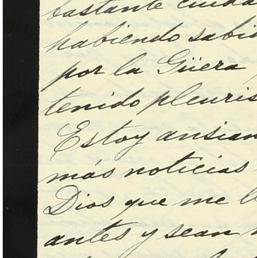 bastante cuida
habiendo sabid
por la Güera
tenido pleuris
Estoy ansian
más noticias
Dios que me l
antes y sean